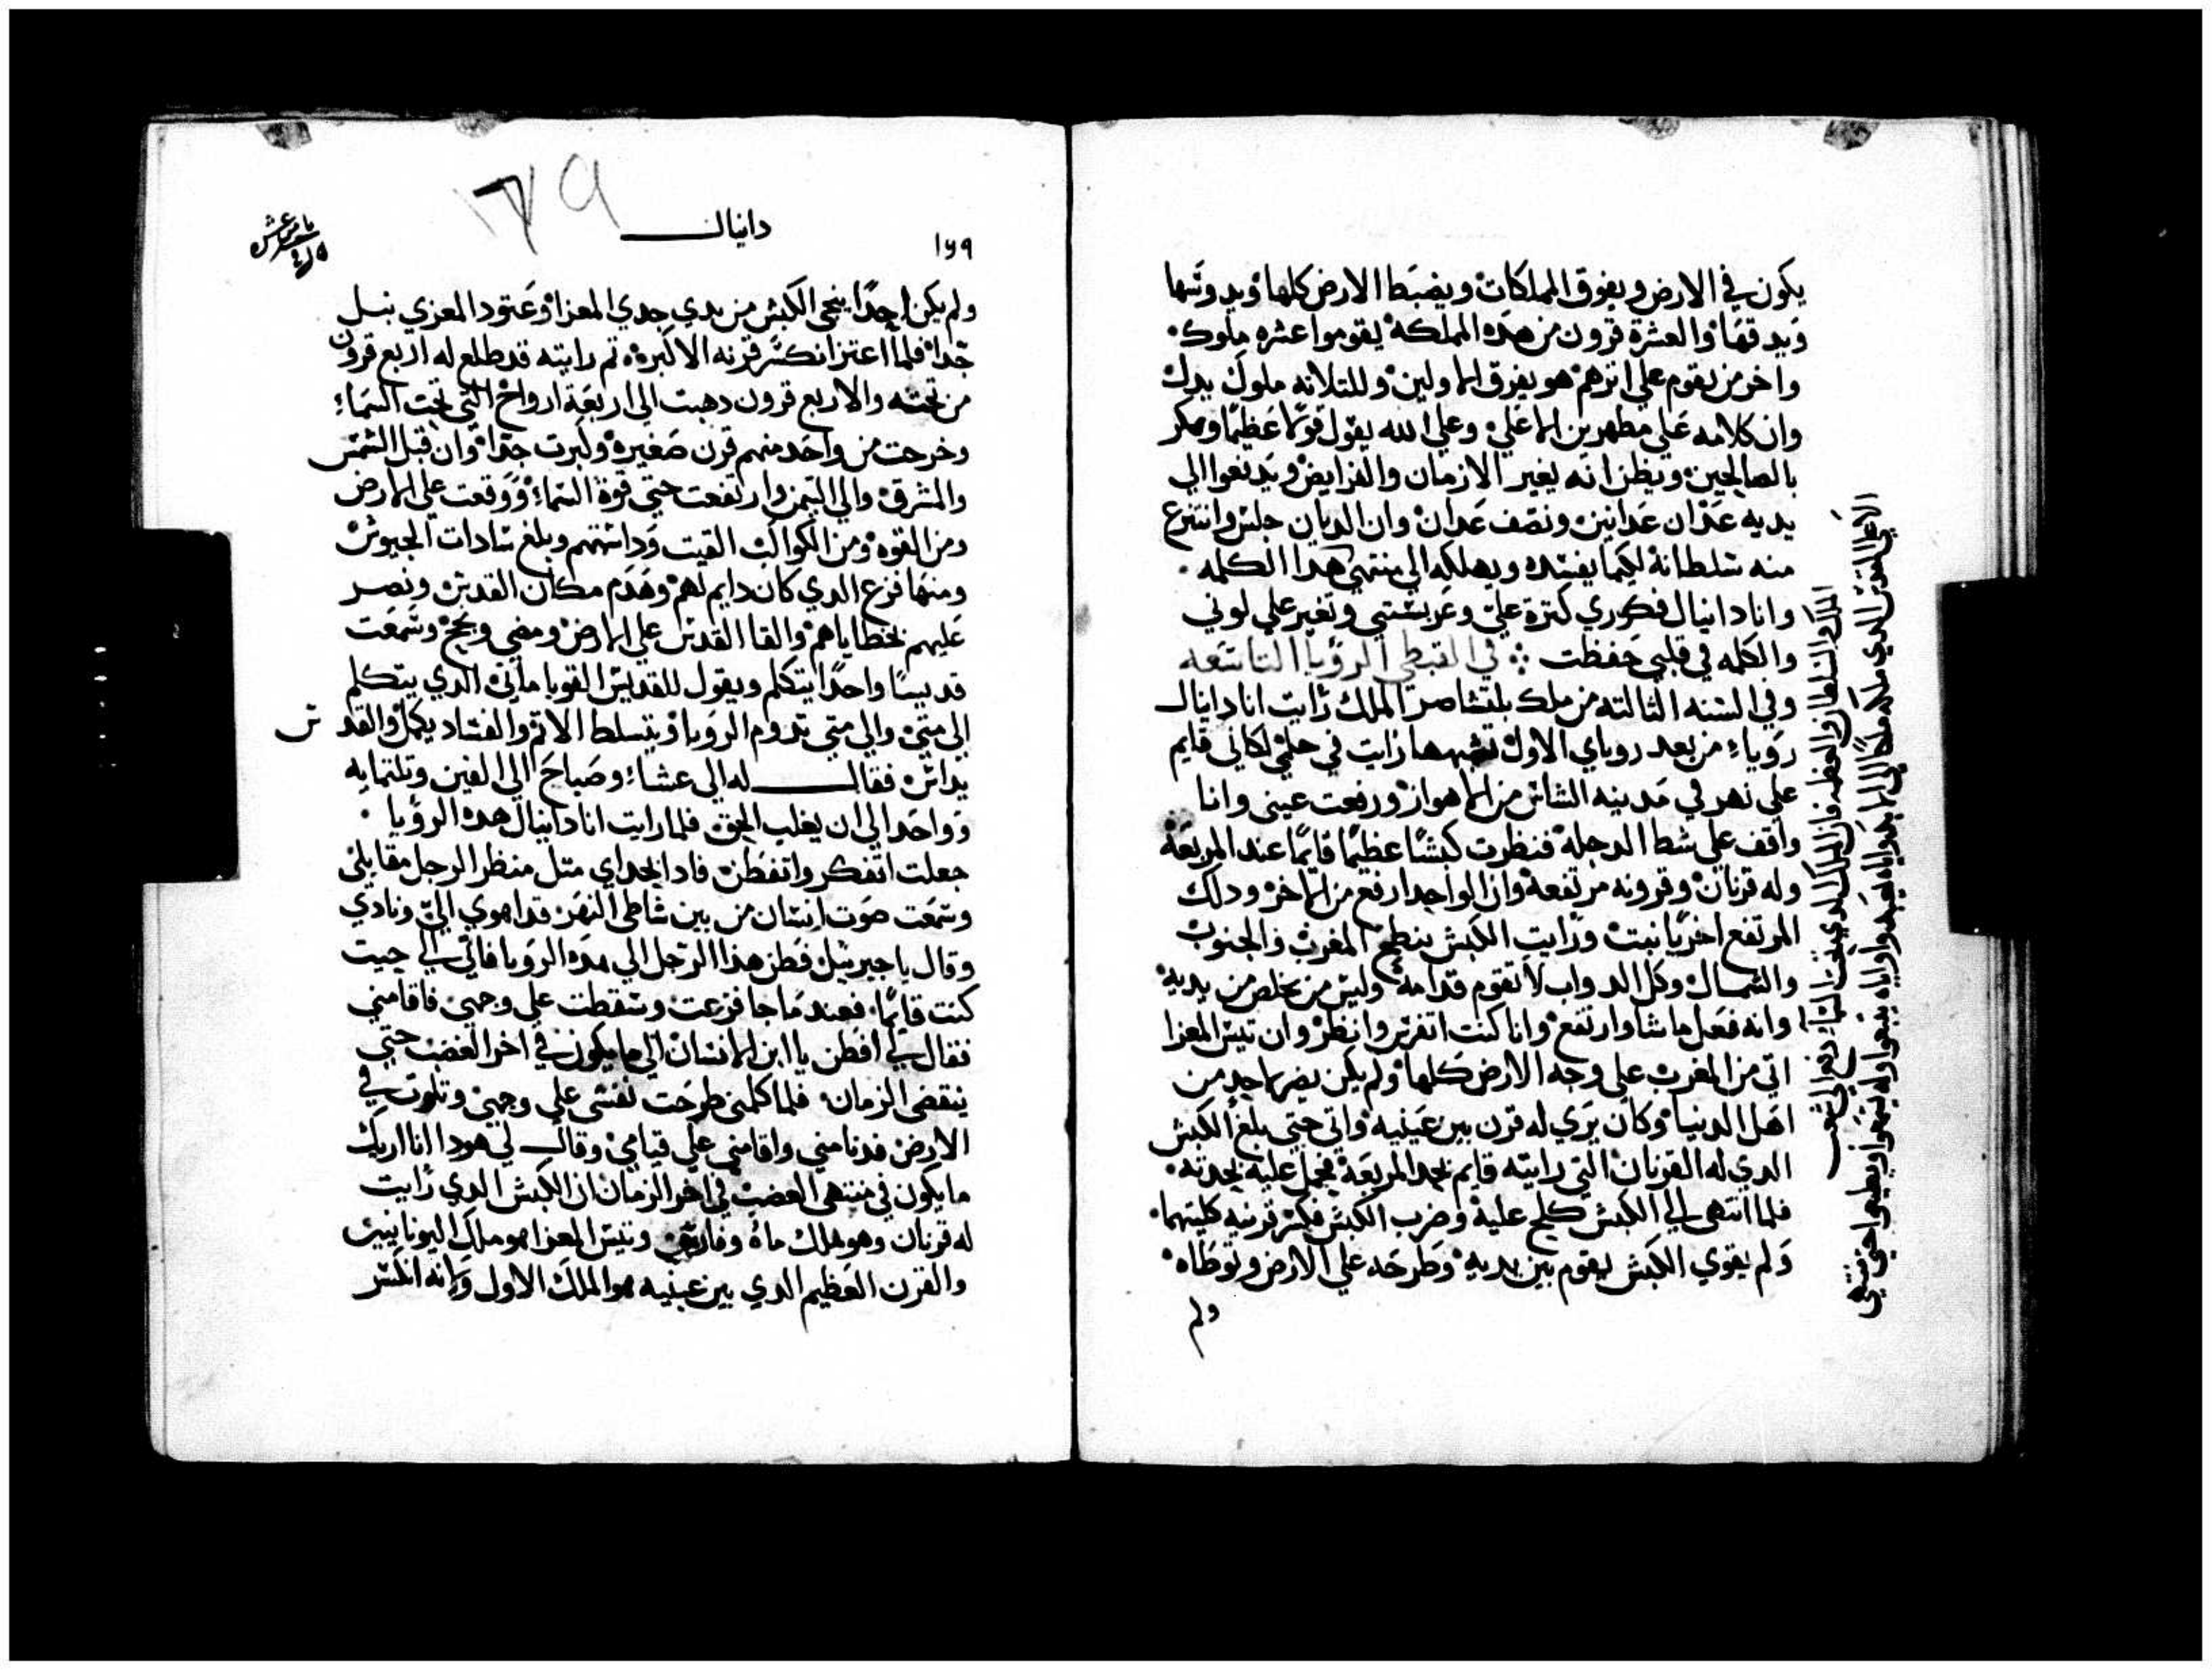 يكون في الارض ويفوق المملكات ويضبط الارض كلها ويدوسها
ويدقها والعشرة قرون من هده المملكة يقوموا عشره ملوك
واخر من يقوم علي اثرهم هو يفرق الاولين وللتلاته ملوك يدل
وان كلامه علي مطهرين الاعلي وعلي الله يقول قولا عظيما ومكر
بالصالحين ويظن انه يغير الازمان والفرايض ويدفعوا الي
يديه عدان عدانين ونصف عدان وان الديان جلس وانتزع
منه سلطانه لكيما يفسده ويهلكه الي منتهي هدا الكلمه
وانا دانيال فكوري كترة علي وعربستني وتغير علي لوني
والكلمه في قلبي حفظت في القبطي الرؤيا التاسعه
وفي السنه الثالته من ملك بلتشاصر الملك رايت انا دانيال
روياء من بعد روياي الاول تشبهها رايت في حلمي لكاني قايم
علي نهر في مدينه الشاش من الاهواز ورفعت عيني وانا
واقف علي شط الدجلة فنظرت كبشا عظيما قايما عند المربعة
وله قرنان وقرونه مرتفعة وان الواحد ارفع من الاخر ودلك
المرتفع اخريا نبت ورايت الكبش ينطح المغرب والجنوب
والشمال وكل الدواب لا تقوم قدامه وليس من يخلص من يديه
وانه فعل ما شا وارتفع وانا كنت اتفرس وانظر وان تيس المعزا
اتي من المغرب علي وجه الارض كلها ولم يكن يضر احد من
اهل الدنيا وكان يري له قرن بين عينيه واتي حتي بلغ الكبش
الدي له القرنان التي رايته قايم بحد المربعة فحمل عليه بحدته
فلما انتهي الي الكبش كلح عليه وضرب الكبش فكسر قرنيه كليتهما
ولم يقوي الكبش يقوم بين يديه وطرحه علي الارض وتوطاه
ولم
الملك والسلطان والعظمه
دفع الي شعب
دانيال
١٧٩
ولم يكن احدا ينجي الكبش من يدي جدي المعزا وعتود المعزي نبل
جدا فلما اعتز انكسر قرنه الاكبره تم رايته قد طلع له اربع قرون
من تحته والاربع قرون دهبت الي اربعة ارواح التي تحت السماء
وخرجت من واحد منهم قرن صغيرة وكبرت جدا وان قبل الشمس
والمشرق والي التيمن وارتفعت حتي قوة السماء ووقعت علي الارض
ومن القوه ومن الكواكب القيت وداستهم وبلغ سادات الجيوش
ومنها فزع الدي كان دايم لهم وهدم مكان القدس ونصر
عليهم بخطاياهم والقا القدس علي الارض ومضي ونجح وسمعت
قديسا واحدا يتكلم ويقول للقديس القويا ماني الدي يتكلم
الي متي والي متي تدوم الرويا ويتسلط الاتم والفساد يكمل والقدس
يداس فقال له الي عشاء وصباح الي الفين وتلتمايه
وواحد الي ان يغلب الحق فلما رايت انا دانيال هده الرؤيا
جعلت اتفكر واتفطن فادا بحداي متل منظر الرجل مقابلي
وسمعت صوت انسان من بين شاطي النهر قد اهوي الي ونادي
وقال يا جبرييل فطن هذا الرجل الي هده الرويا فاتي الي حيت
كنت قايما فعندما جا فزعت وسقطت علي وجهي فاقامني
فقال لي افطن يا ابن الانسان الي ما يكون في اخر الغضب حتي
ينقضي الزمان فلما كلمني طرحت نفسي علي وجهي وتلوت في
الارض فدنا مني واقامني علي قيامي وقال لي هودا انا اريك
ما يكون في منتهي الغضب في اخر الزمان ان الكبش الدي رايت
له قرنان وهو ملك ماه وفارس وتيس المعزا هو ملك اليونانيين
والقرن العظيم الدي بين عينيه هو الملك الاول وانه انكسر